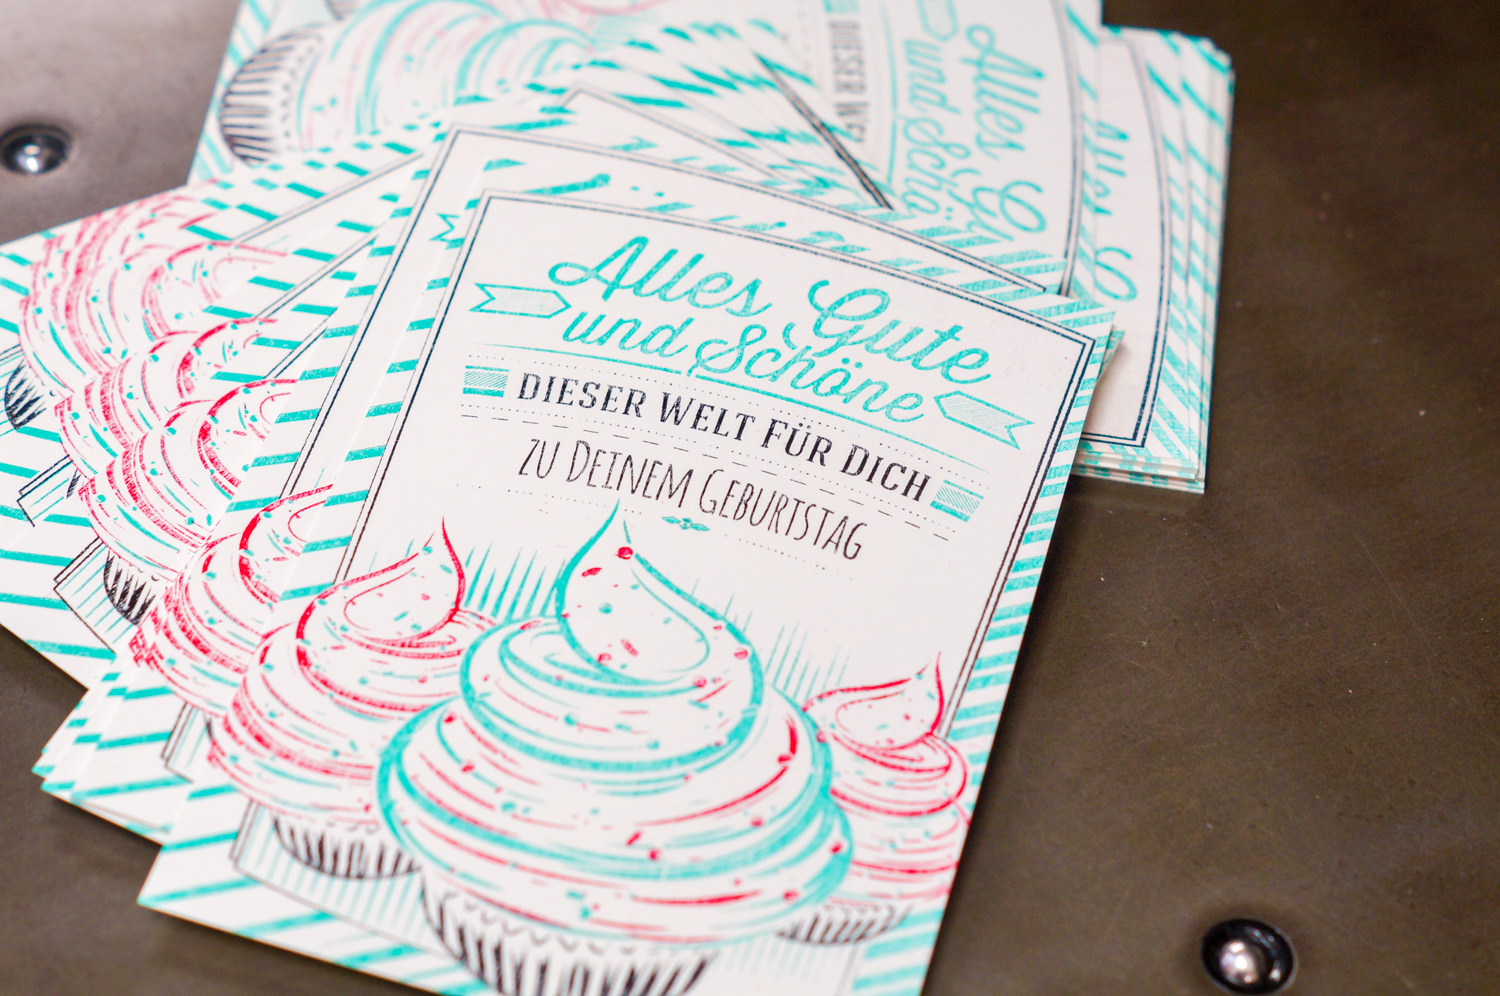 Alles Gute
und Schöne
DIESER WELT FÜR DICH
ZU DEINEM GEBURTSTAG
Alles G
und Schö
DIESER WE
Alles G